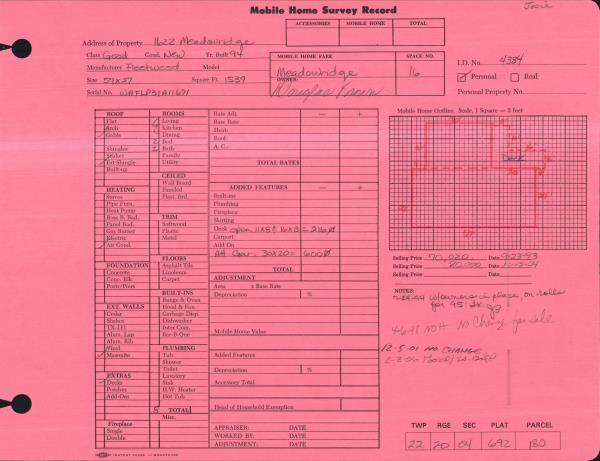 Josie
Mobile Home Survey Record
ACCESSORIES MOBILE HOME TOTAL
Address of Property 1622 Meadowridge
Class Good Cond. New Yr. Built 94
Manufacturer Fleetwood Model
Size 57x27 Square Ft. 1539
Serial No. WAFLP31A11671
MOBILE HOME PARK SPACE NO.
Meadowridge 16
OWNER:
Douglas Brown
I.D. No. 4384
Personal Real
Personal Property No.
ROOF
Flat
Arch
Gable
Shingles
Shakes
Fat Shingle
Built-up
HEATING
Stoves
Pipe Furn.
Heat Pump
Base B. Rad.
Panel Rad.
Gas Burner
Electric
Air Cond.
FOUNDATION
Concrete
Conc. Blk.
Posts/Piers
EXT. WALLS
Cedar
Shakes
TX-111
Alum. Lap
Alum. Rib
Vinyl
Masonite
EXTRAS
Decks
Porches
Add-On
Fireplace
Single
Double
ROOMS
Living
Kitchen
Dining
2 Bed
2 Bath
Family
Utility
CEILED
Wall Board
Paneled
Plast. Brd.
TRIM
Softwood
Plastic
Metal
FLOORS
Asphalt Tile
Linoleum
Carpet
BUILT-INS
Range & Oven
Hood & Fan
Garbage Disp.
Dishwasher
Inter Com.
Bar-B-Que
PLUMBING
Tub
Shower
Toilet
Lavatory
Sink
H.W. Heater
Hot Tub
8 TOTAL
Misc.
Rate Adj. — +
Base Rate
Heat:
Roof:
A. C.:
TOTAL RATES
ADDED FEATURES — +
Built-ins
Plumbing
Fireplace
Skirting
Deck open 11x8 & 16x8 = 216
Carport
Add On
Att Gar. 30x20 = 600
TOTAL
ADJUSTMENT
Area x Base Rate
Depreciation %
Mobile Home Value
Added Features
Depreciation %
Accessory Total
Head of Household Exemption
APPRAISER: DATE
WORKED BY: DATE
ADJUSTMENT: DATE
Mobile Home Outline. Scale, 1 Square = 2 feet
Deck
Selling Price 70,020 Date 9-23-93
Selling Price 80,000 Date 12-13-04
Selling Price Date
NOTES:
12-5-01 no CHANGE
TWP RGE SEC PLAT PARCEL
22 20 04 692 180